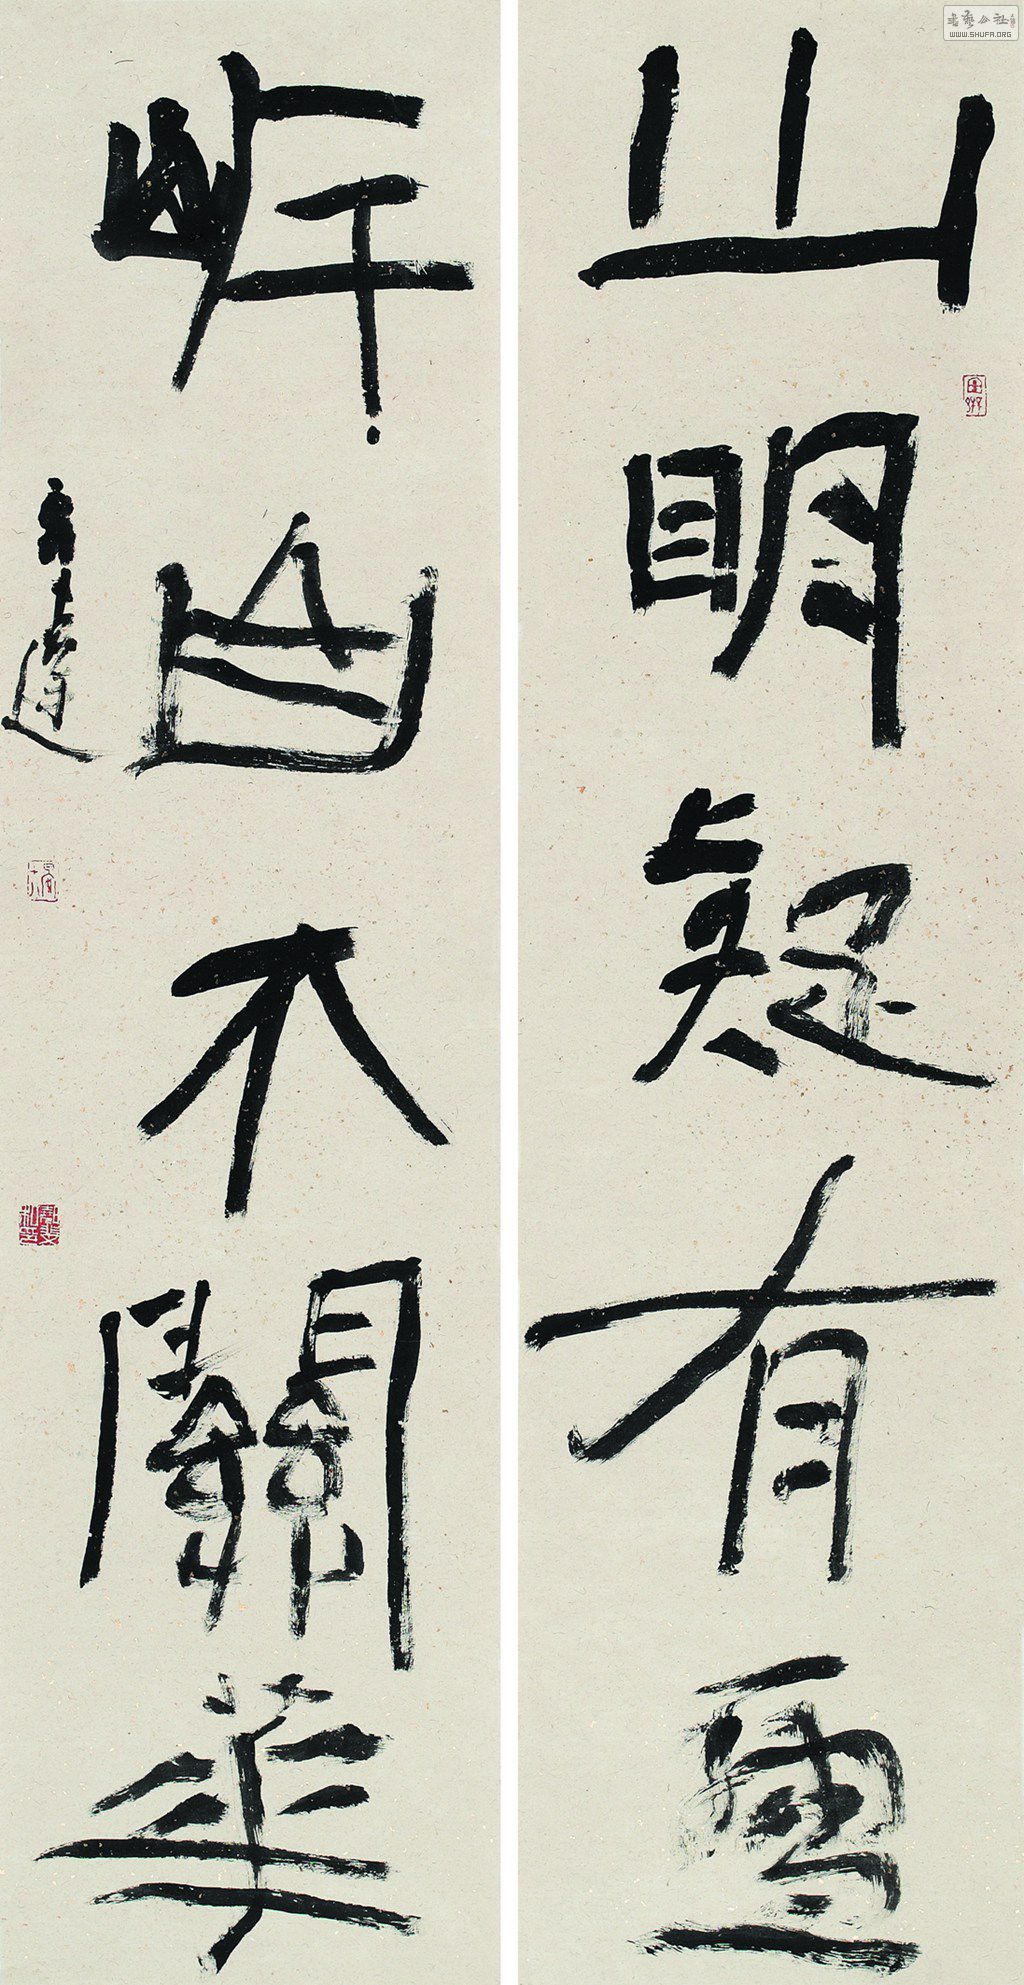 山明疑有雪
岸白不關華
書藝公社
WWW.SHUFA.ORG